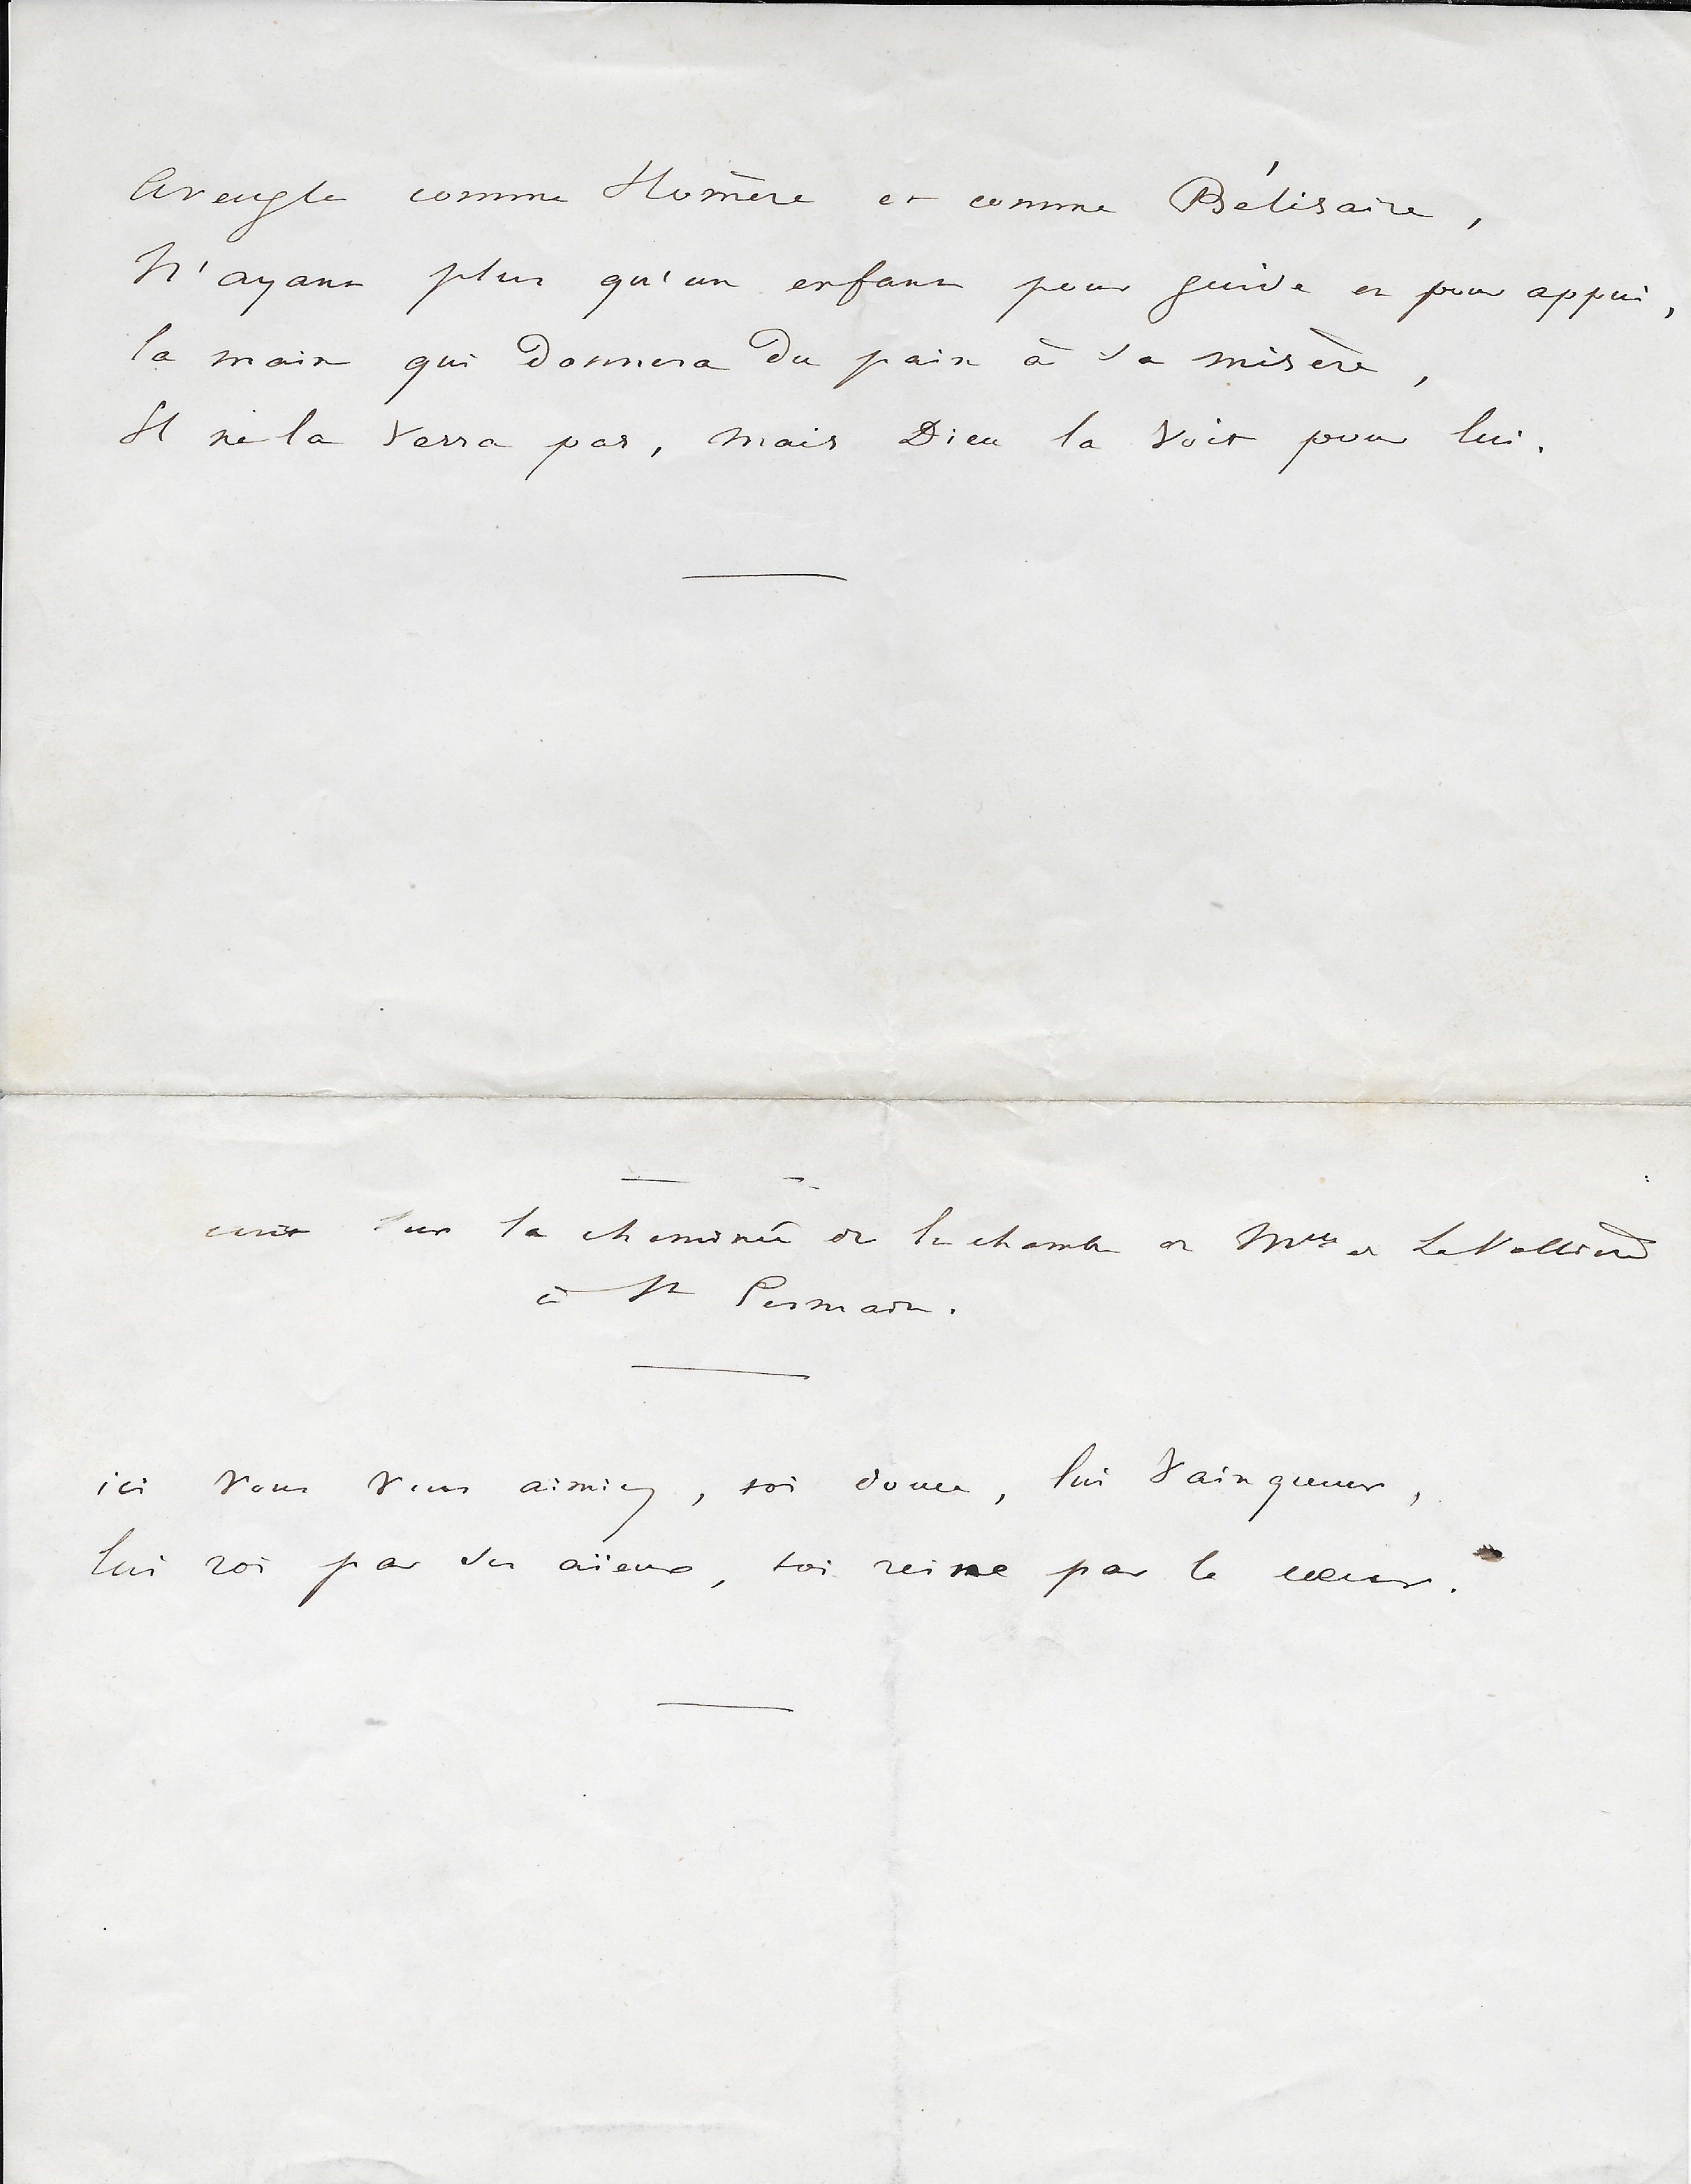 Aveugle comme Homère et comme Bélisaire,
N'ayant plus qu'un enfant pour guide et pour appui,
la main qui donnera du pain à sa misère,
Il ne la verra pas, mais Dieu la voit pour lui.
écrit sur la cheminée de la chambre de Mlle de La Vallière
à St Germain.
ici vous vous aimiez, toi douce, lui vainqueur,
lui roi par ses aïeux, toi reine par le cœur.